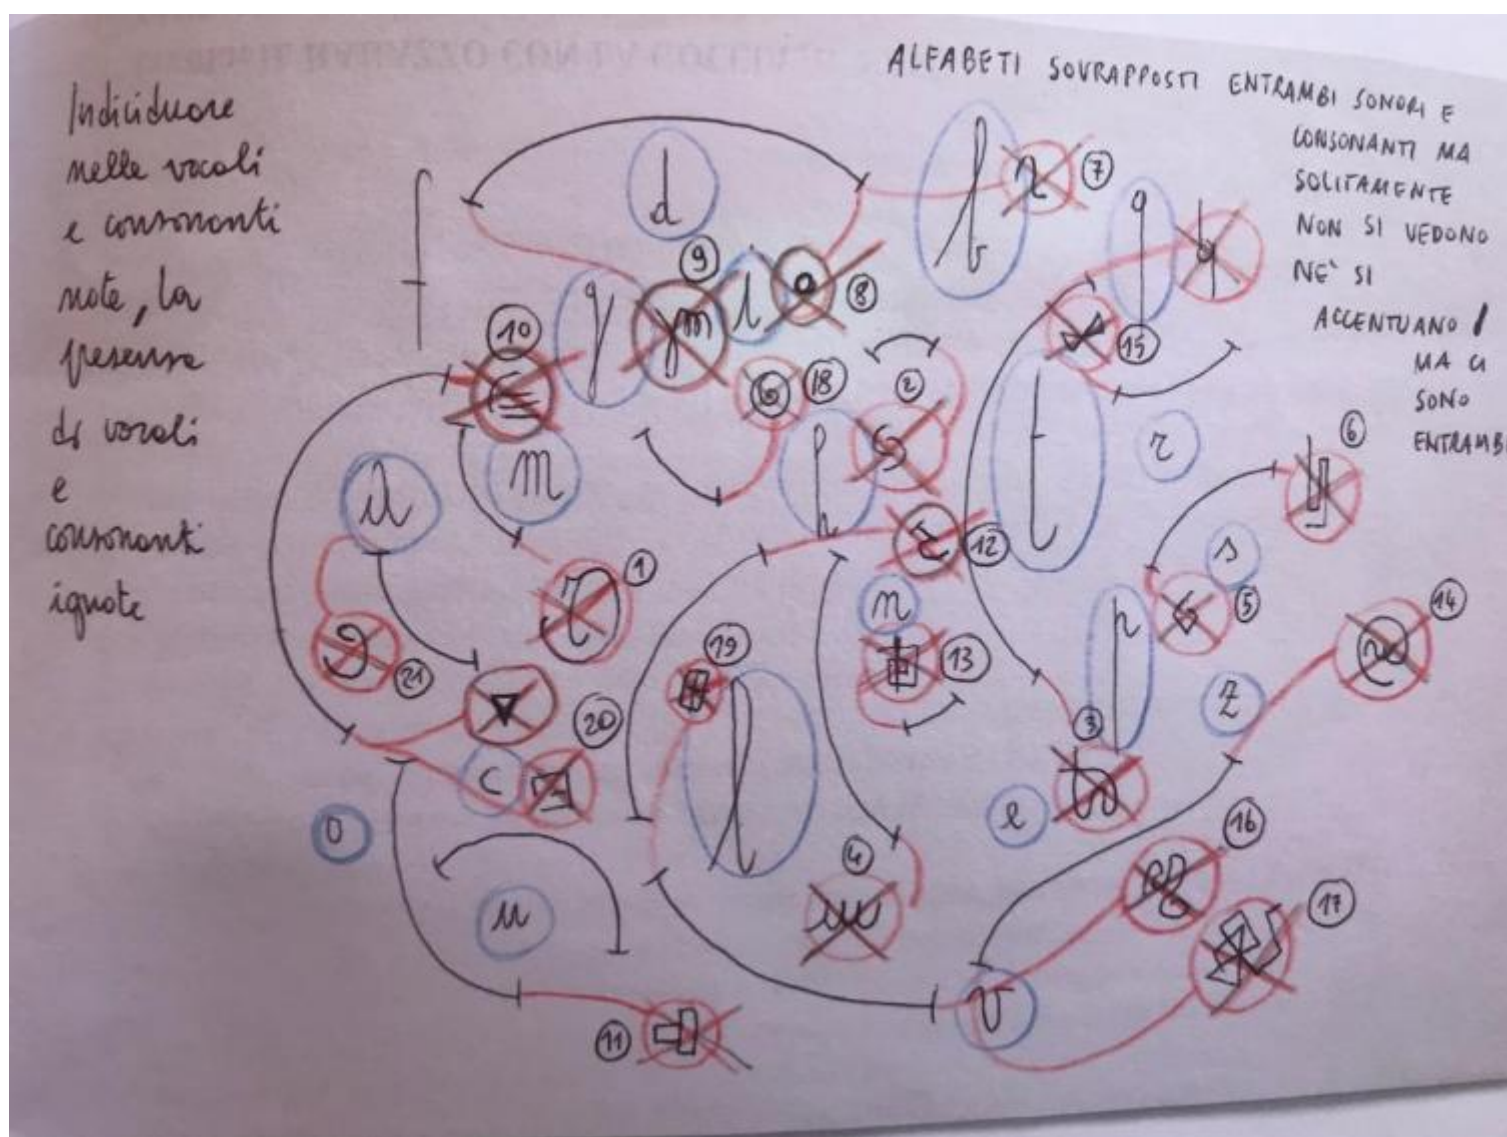 Individuare
nelle vocali
e consonanti
note, la
presenza
di vocali
e
consonanti
ignote
ALFABETI SOVRAPPOSTI ENTRAMBI SONORI E
CONSONANTI MA
SOLITAMENTE
NON SI VEDONO
NE' SI
ACCENTUANO /
MA CI
SONO
ENTRAMBI
d
f
b
7
q
9
i
8
10
m
18
2
h
15
t
r
6
a
1
12
n
s
5
14
21
19
13
p
z
20
c
3
o
l
e
4
16
u
17
v
11